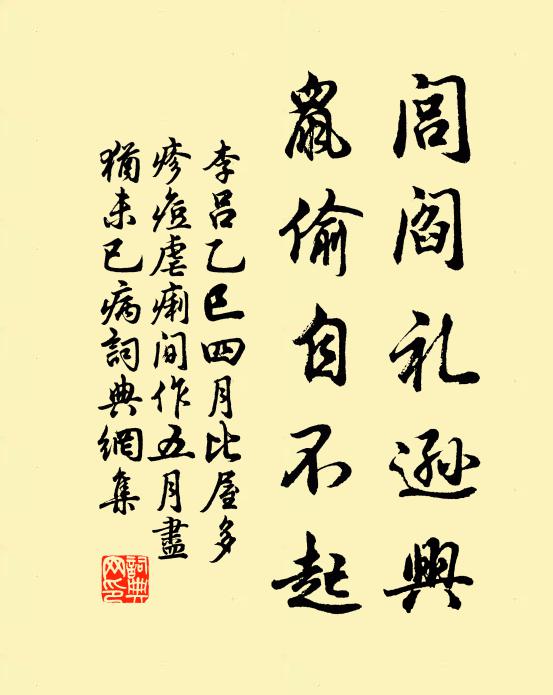 閭閻礼遜興
鼠偷自不起
李吕乙巳四月比屋多
疹痘虐痢间作五月盡
猶未已病詞典網集
詞典
网印